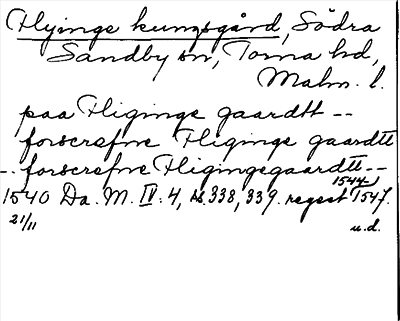 Flyinge kungsgård, Södra
Sandby sn, Torna hd,
Malm. l.
paa Fliginge gaardtt --
forscrefne Fliginge gaardtt
-- forscrefne Fligingegaardtt --
1544-
1540 Da. M. IV. 4, s. 338, 339. regest 1547.
21/11 u.d.